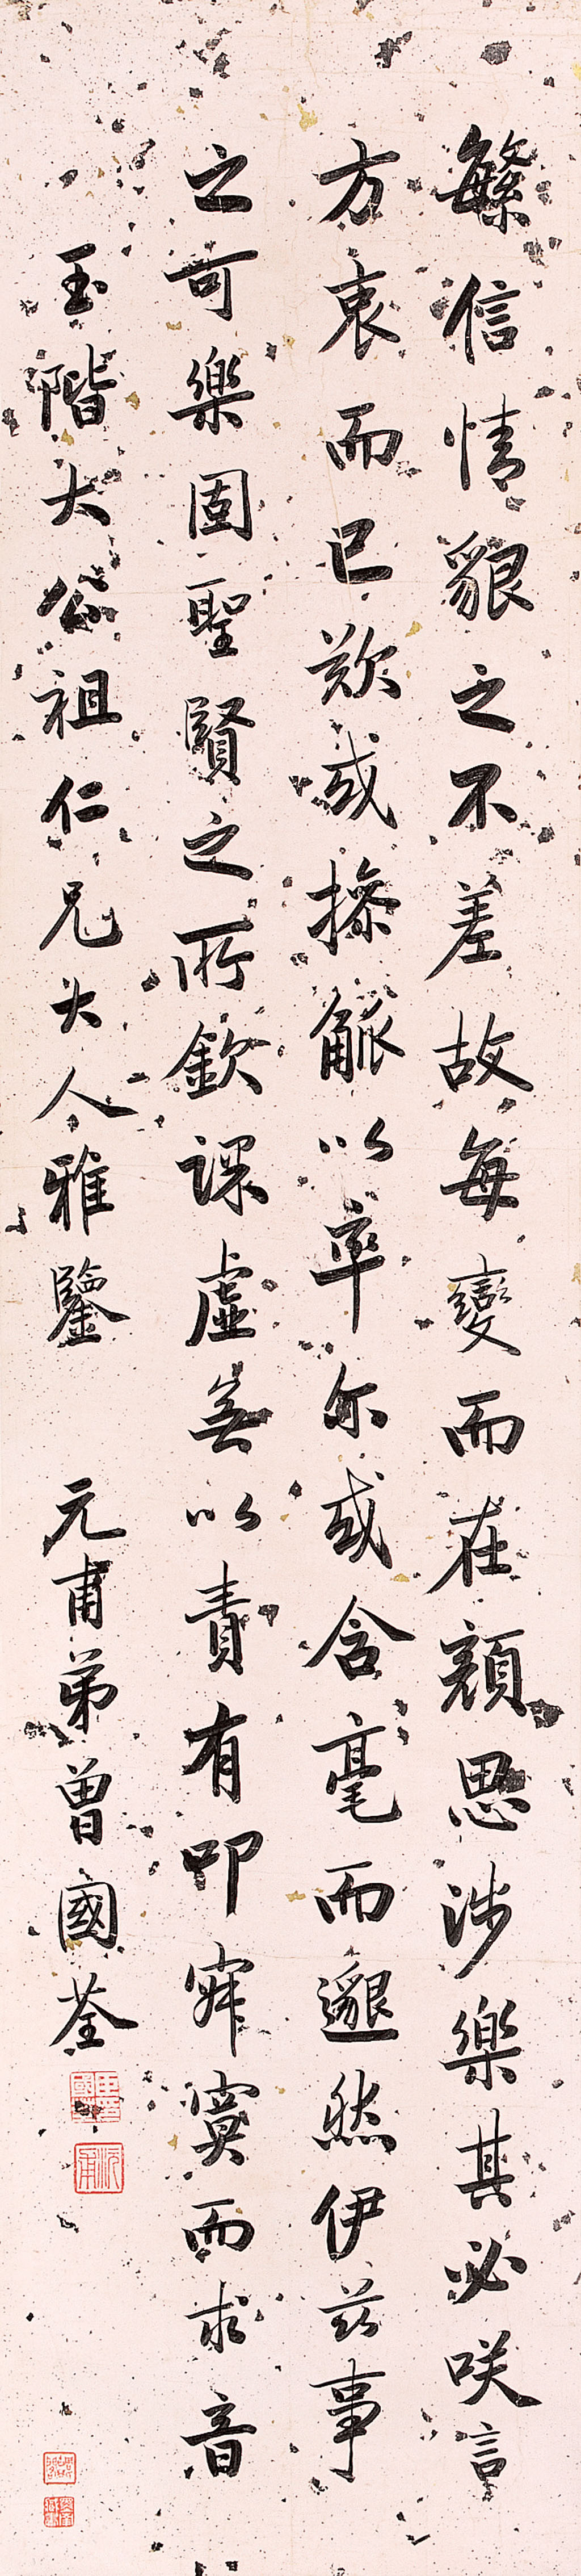 繁信情貌之不差故每變而在顔思涉樂其必咲言
方哀而已歎或操觚以率尔或含毫而邈然伊茲事
之可樂固聖賢之所欽課虛無以責有叩寂寞而求音
玉階大公祖仁兄大人雅鑒 元甫弟曾國荃